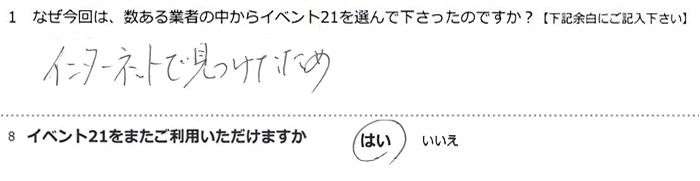 1 なぜ今回は、数ある業者の中からイベント21を選んで下さったのですか？【下記余白にご記入下さい】
インターネットで見つけたため
8 イベント21をまたご利用いただけますか はい いいえ